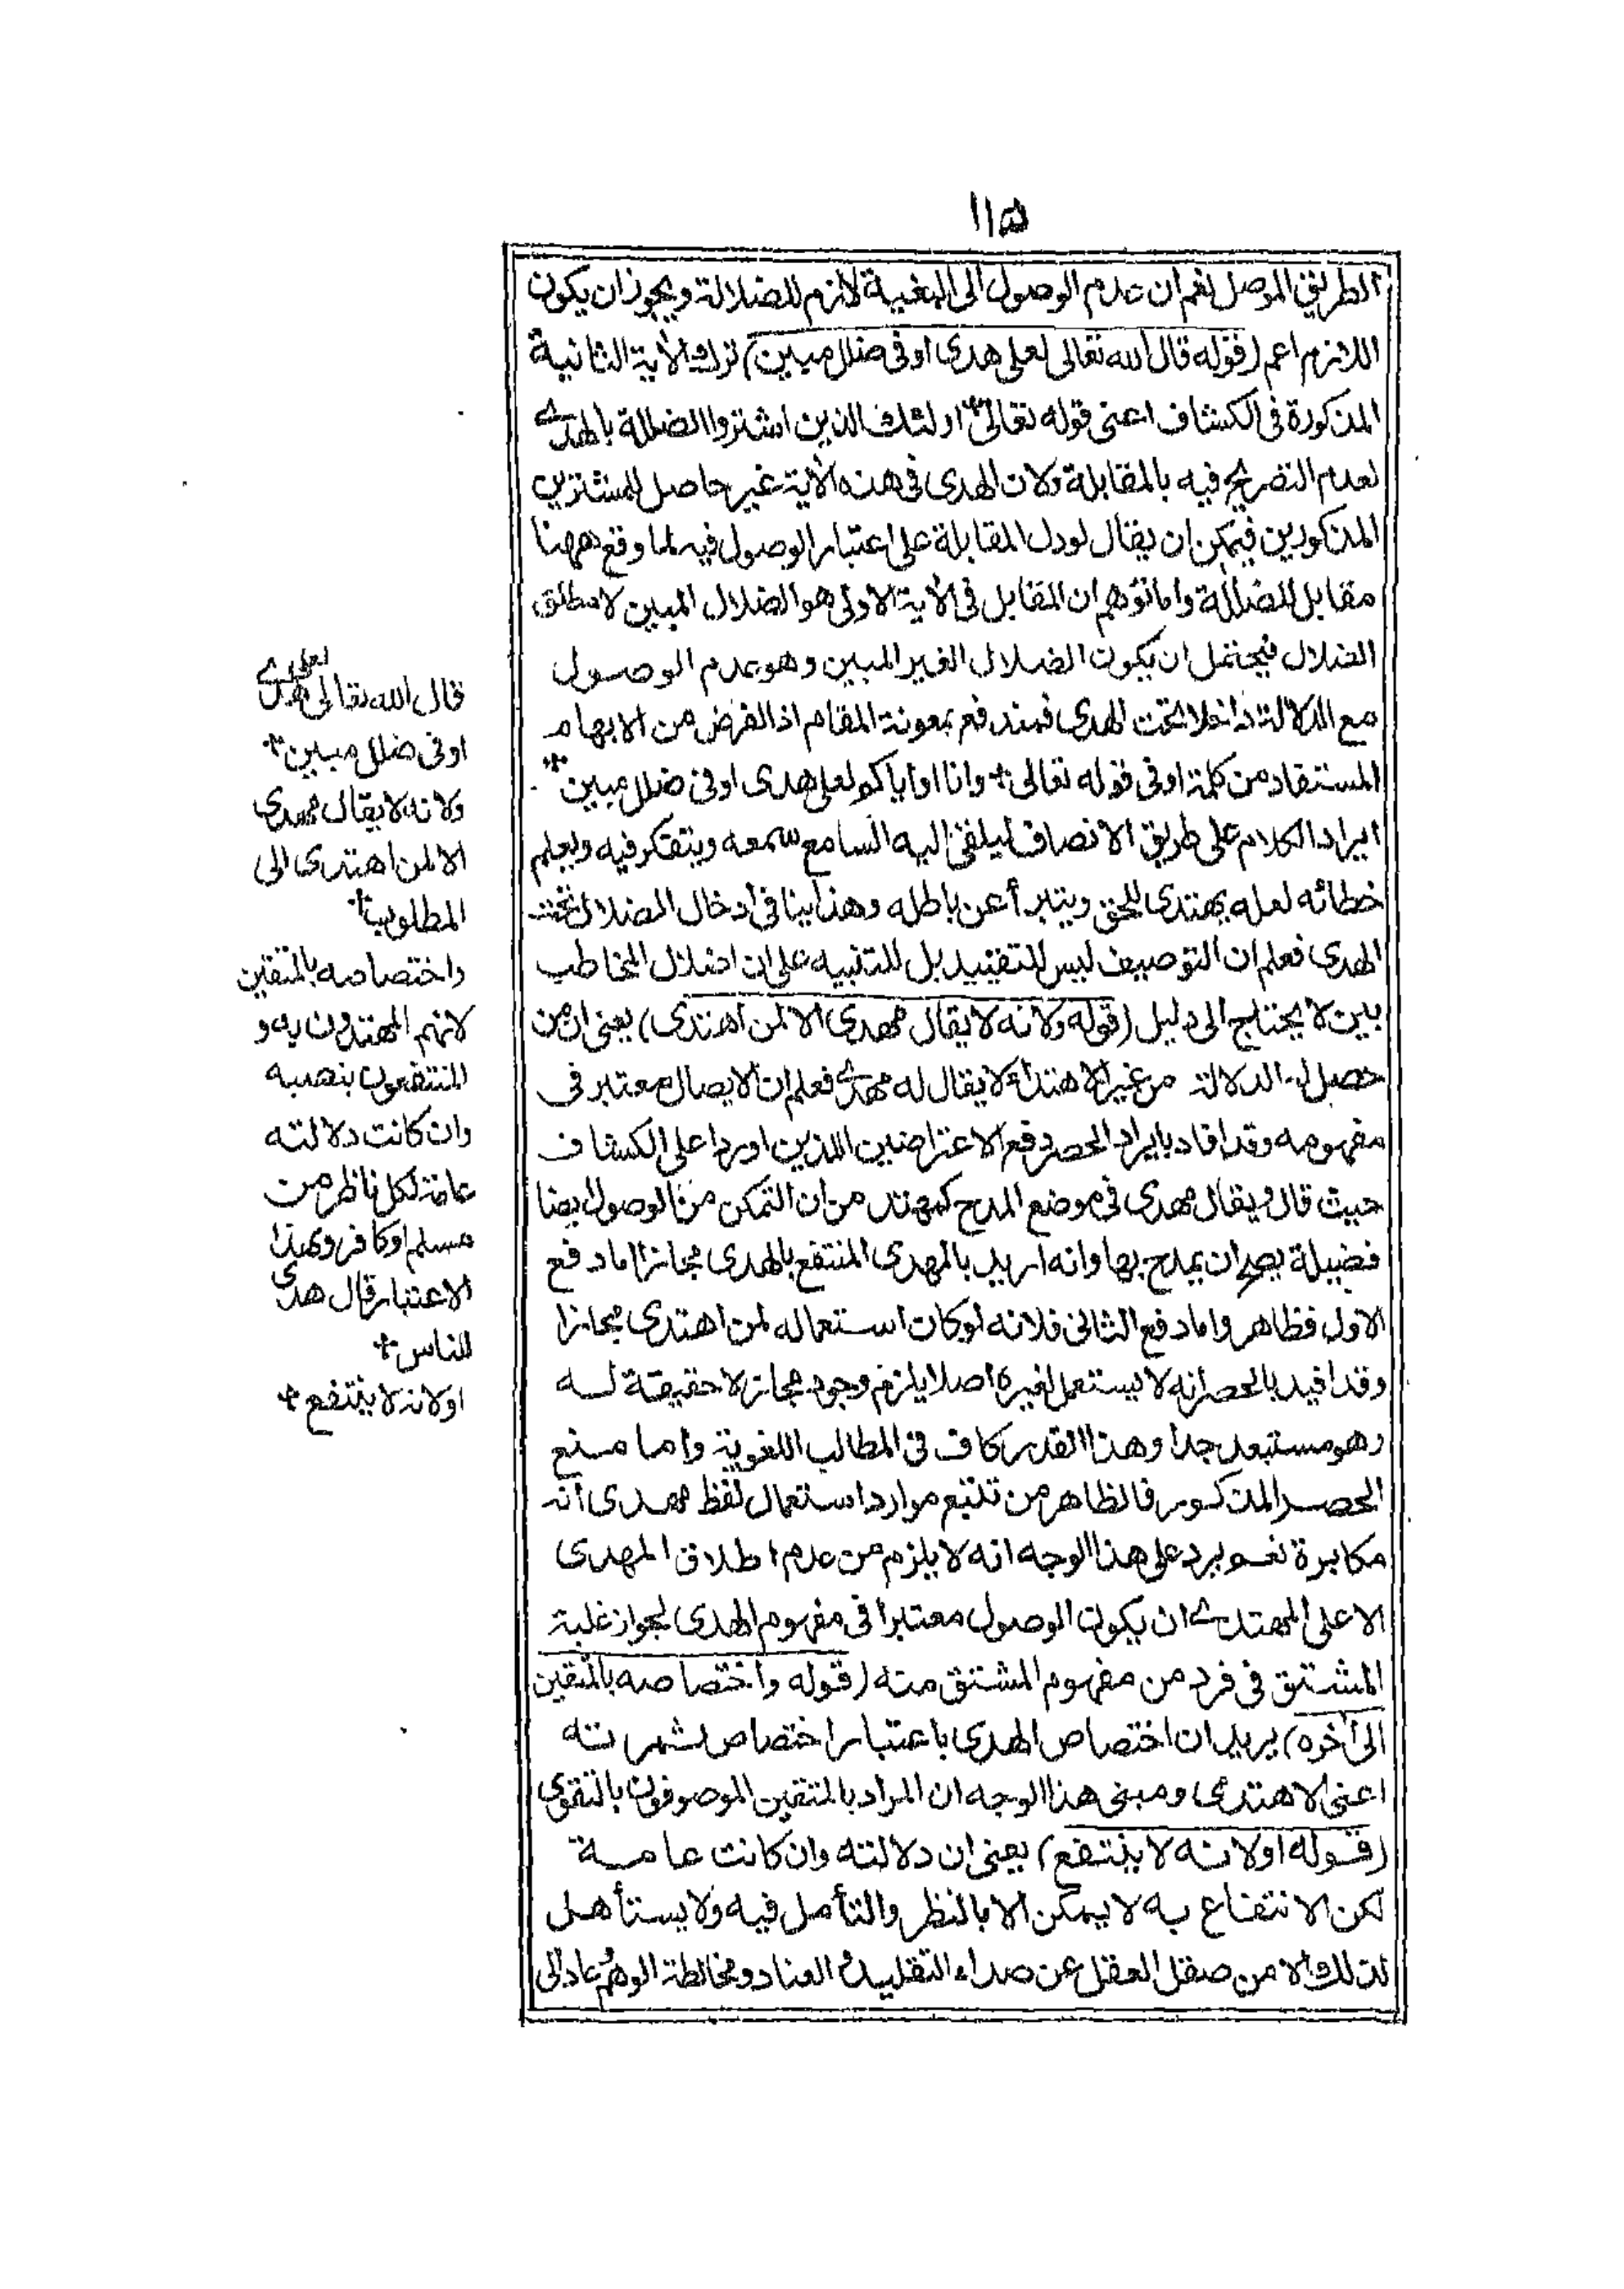 ١١٥
الطريق الموصل نعم ان عدم الوصول الى البغية لازم للضلالة ويجوز ان يكون
اللازم اعم (قوله قال الله تعالى لعلى هدى او فى ضلل مبين) ترك الآية الثانية
المذكورة فى الكشاف اعنى قوله تعالى اولئك الذين اشتروا الضللة بالهدى
لعدم التصريح فيه بالمقابلة ولان الهدى فى هذه الآية غير حاصل للمشترين
المذكورين فيمكن ان يقال لو دل المقابلة على اعتبار الوصول فيه لما وقع ههنا
مقابل للضللة واما توهم ان المقابل فى الآية الاولى هو الضلال المبين لا مطلق
الضلال فيحتمل ان يكون الضلال الغير المبين وهو عدم الوصول
مع الدلالة داخلا تحت الهدى فمندفع بمعونة المقام اذ الغرض من الابهام
المستفاد من كلمة او فى قوله تعالى * وانا او اياكم لعلى هدى او فى ضلل مبين *
ايراد الكلام على طريق الانصاف ليلقى اليه السامع سمعه ويتفكر فيه ويعلم
خطائه لعله يهتدى للحق ويتبرأ عن باطله وهذا ينافى ادخال الضلال تحت
الهدى فعلم ان التوصيف ليس للتقييد بل للتنبيه على ان اضلال المخاطب
بين لا يحتاج الى دليل (قوله ولانه لا يقال مهدى الا لمن اهتدى) يعنى ان من
حصل له الدلالة من غير الاهتداء لا يقال له مهدى فعلم ان الايصال معتبر فى
مفهومه وقد افاد بايراد الحصر دفع الاعتراضين اللذين اوردا على الكشاف
حيث قال ويقال مهدى فى موضع المدح كمهتد من ان التمكن من الوصول ايضا
فضيلة يصح ان يمدح بها وانه اريد بالمهدى المنتفع بالهدى مجازا اما دفع
الاول فظاهر واما دفع الثانى فلانه لو كان استعماله لمن اهتدى مجازا
وقد افيد بالحصر انه لا يستعمل لغيره اصلا يلزم وجود مجاز لا حقيقة له
وهو مستبعد جدا وهذا القدر كاف فى المطالب اللغوية واما منع
الحصر المذكور فالظاهر من تتبع موارد استعمال لفظ مهدى انه
مكابرة نعم يرد على هذا الوجه انه لا يلزم من عدم اطلاق المهدى
الا على المهتدى ان يكون الوصول معتبرا فى مفهوم الهدى لجواز غلبة
المشتق فى فرد من مفهوم المشتق منه (قوله واختصاصه بالمتقين
الى آخره) يريد ان اختصاص الهدى باعتبار اختصاص لثمرته
اعنى الاهتدى ومبنى هذا الوجه ان المراد بالمتقين الموصوفون بالتقوى
(قوله اولانه لا ينتفع) يعنى ان دلالته وان كانت عامة
لكن الانتفاع به لا يمكن الا بالنظر والتأمل فيه ولا يستأهل
لذلك الا من صقل العقل عن صداء التقليد والعناد ومخالطة الوهم عاد الى
قال الله تعالى لعلى هدى
او فى ضلل مبين *
ولانه لا يقال مهدى
الا لمن اهتدى الى
المطلوب *
واختصاصه بالمتقين
لانهم المهتدون به و
المنتفعون بنصبه
وان كانت دلالته
عامة لكل ناظر من
مسلم او كافر وبهذا
الاعتبار قال هدى
للناس *
اولانه لا ينتفع *